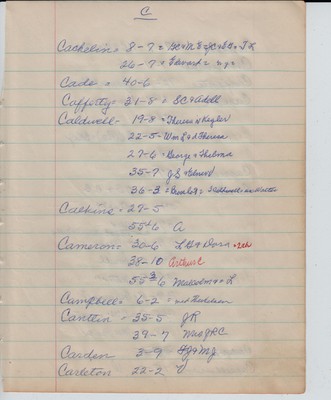 C
Cachelin = 8-7 =
26-7 =
Cade = 40-6
Cafferty = 31-8 = SC & Adell
Caldwell - 19-8 = Theresa & Kegler
22-5 - Wm S & Theresa
27-6 = George & Thelma
35-7 JS & Edward
36-3 =
Calkins = 27-5
55-6 A
Cameron = 30-6 L & Dora
38-10 Arthur C
55-6 Malcolm & L
Campbell = 6-2 =
Cantlin = 35-5 JR
39-7 Mrs JRC
Carden 3-9 & MJ
Carleton 22-2 V